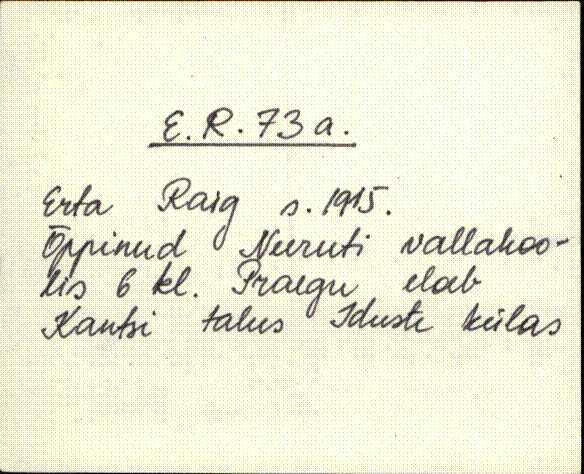 E. R. 73 a.
Erta Raig s. 1915.
Õppinud Neeruti vallakoo-
lis 6 kl. Praegu elab
Kantsi talus Iduste külas